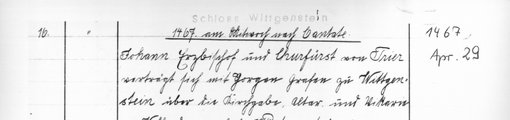 Schloss Wittgenstein
16. " 1467. am Mittwoch nach Cantate 1467
Johann Erzbischof und Churfürst von Trier Apr. 29
verträgt sich mit Jorgen Grafen zu Wittgen-
stein über die Kirchgabe, Altar und Vikarie